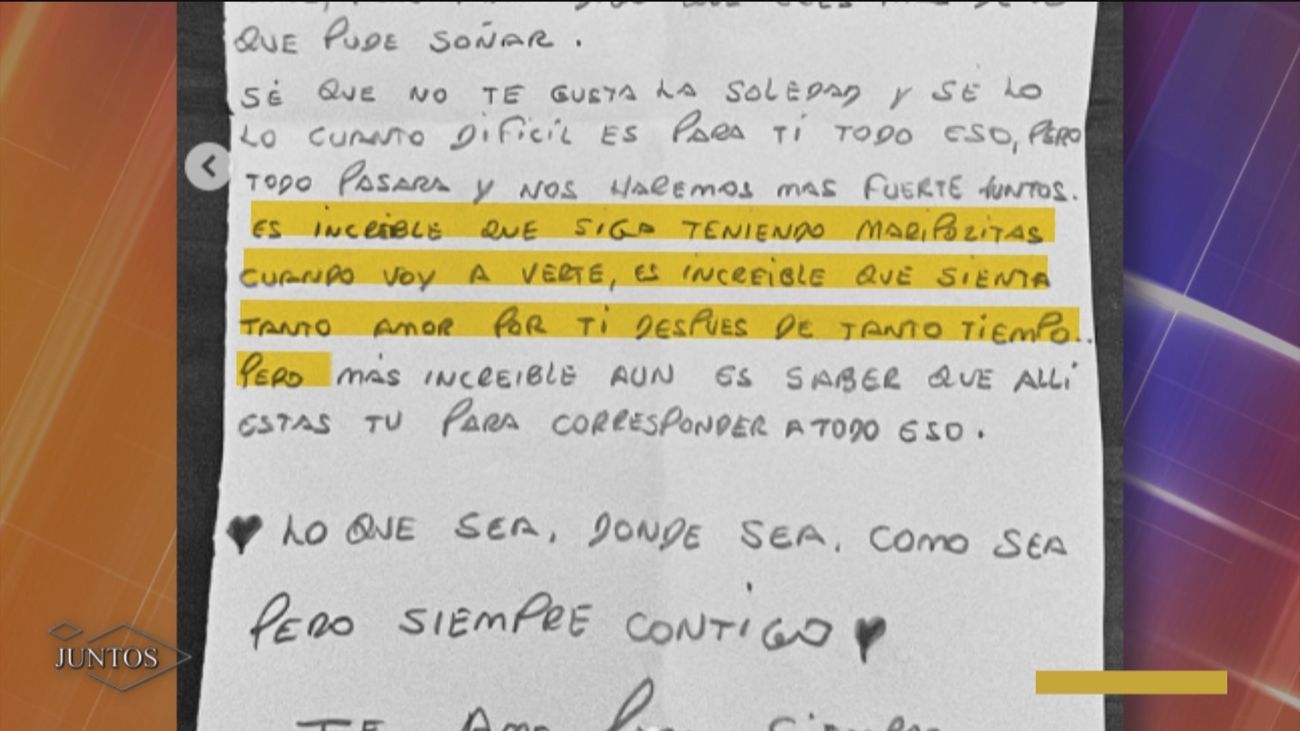 QUE PUDE SOÑAR.
SÉ QUE NO TE GUSTA LA SOLEDAD Y SE LO
LO CUANTO DIFICIL ES PARA TI TODO ESO, PERO
TODO PASARA Y NOS HAREMOS MAS FUERTE JUNTOS.
ES INCREIBLE QUE SIGA TENIENDO MARIPOZITAS
CUANDO VOY A VERTE, ES INCREIBLE QUE SIENTA
TANTO AMOR POR TI DESPUES DE TANTO TIEMPO..
PERO MÁS INCREIBLE AUN ES SABER QUE ALLÍ
ESTAS TU PARA CORRESPONDER A TODO ESO.
♥ LO QUE SEA, DONDE SEA, COMO SEA
PERO SIEMPRE CONTIGO ♥
TE AMO
JUNTOS